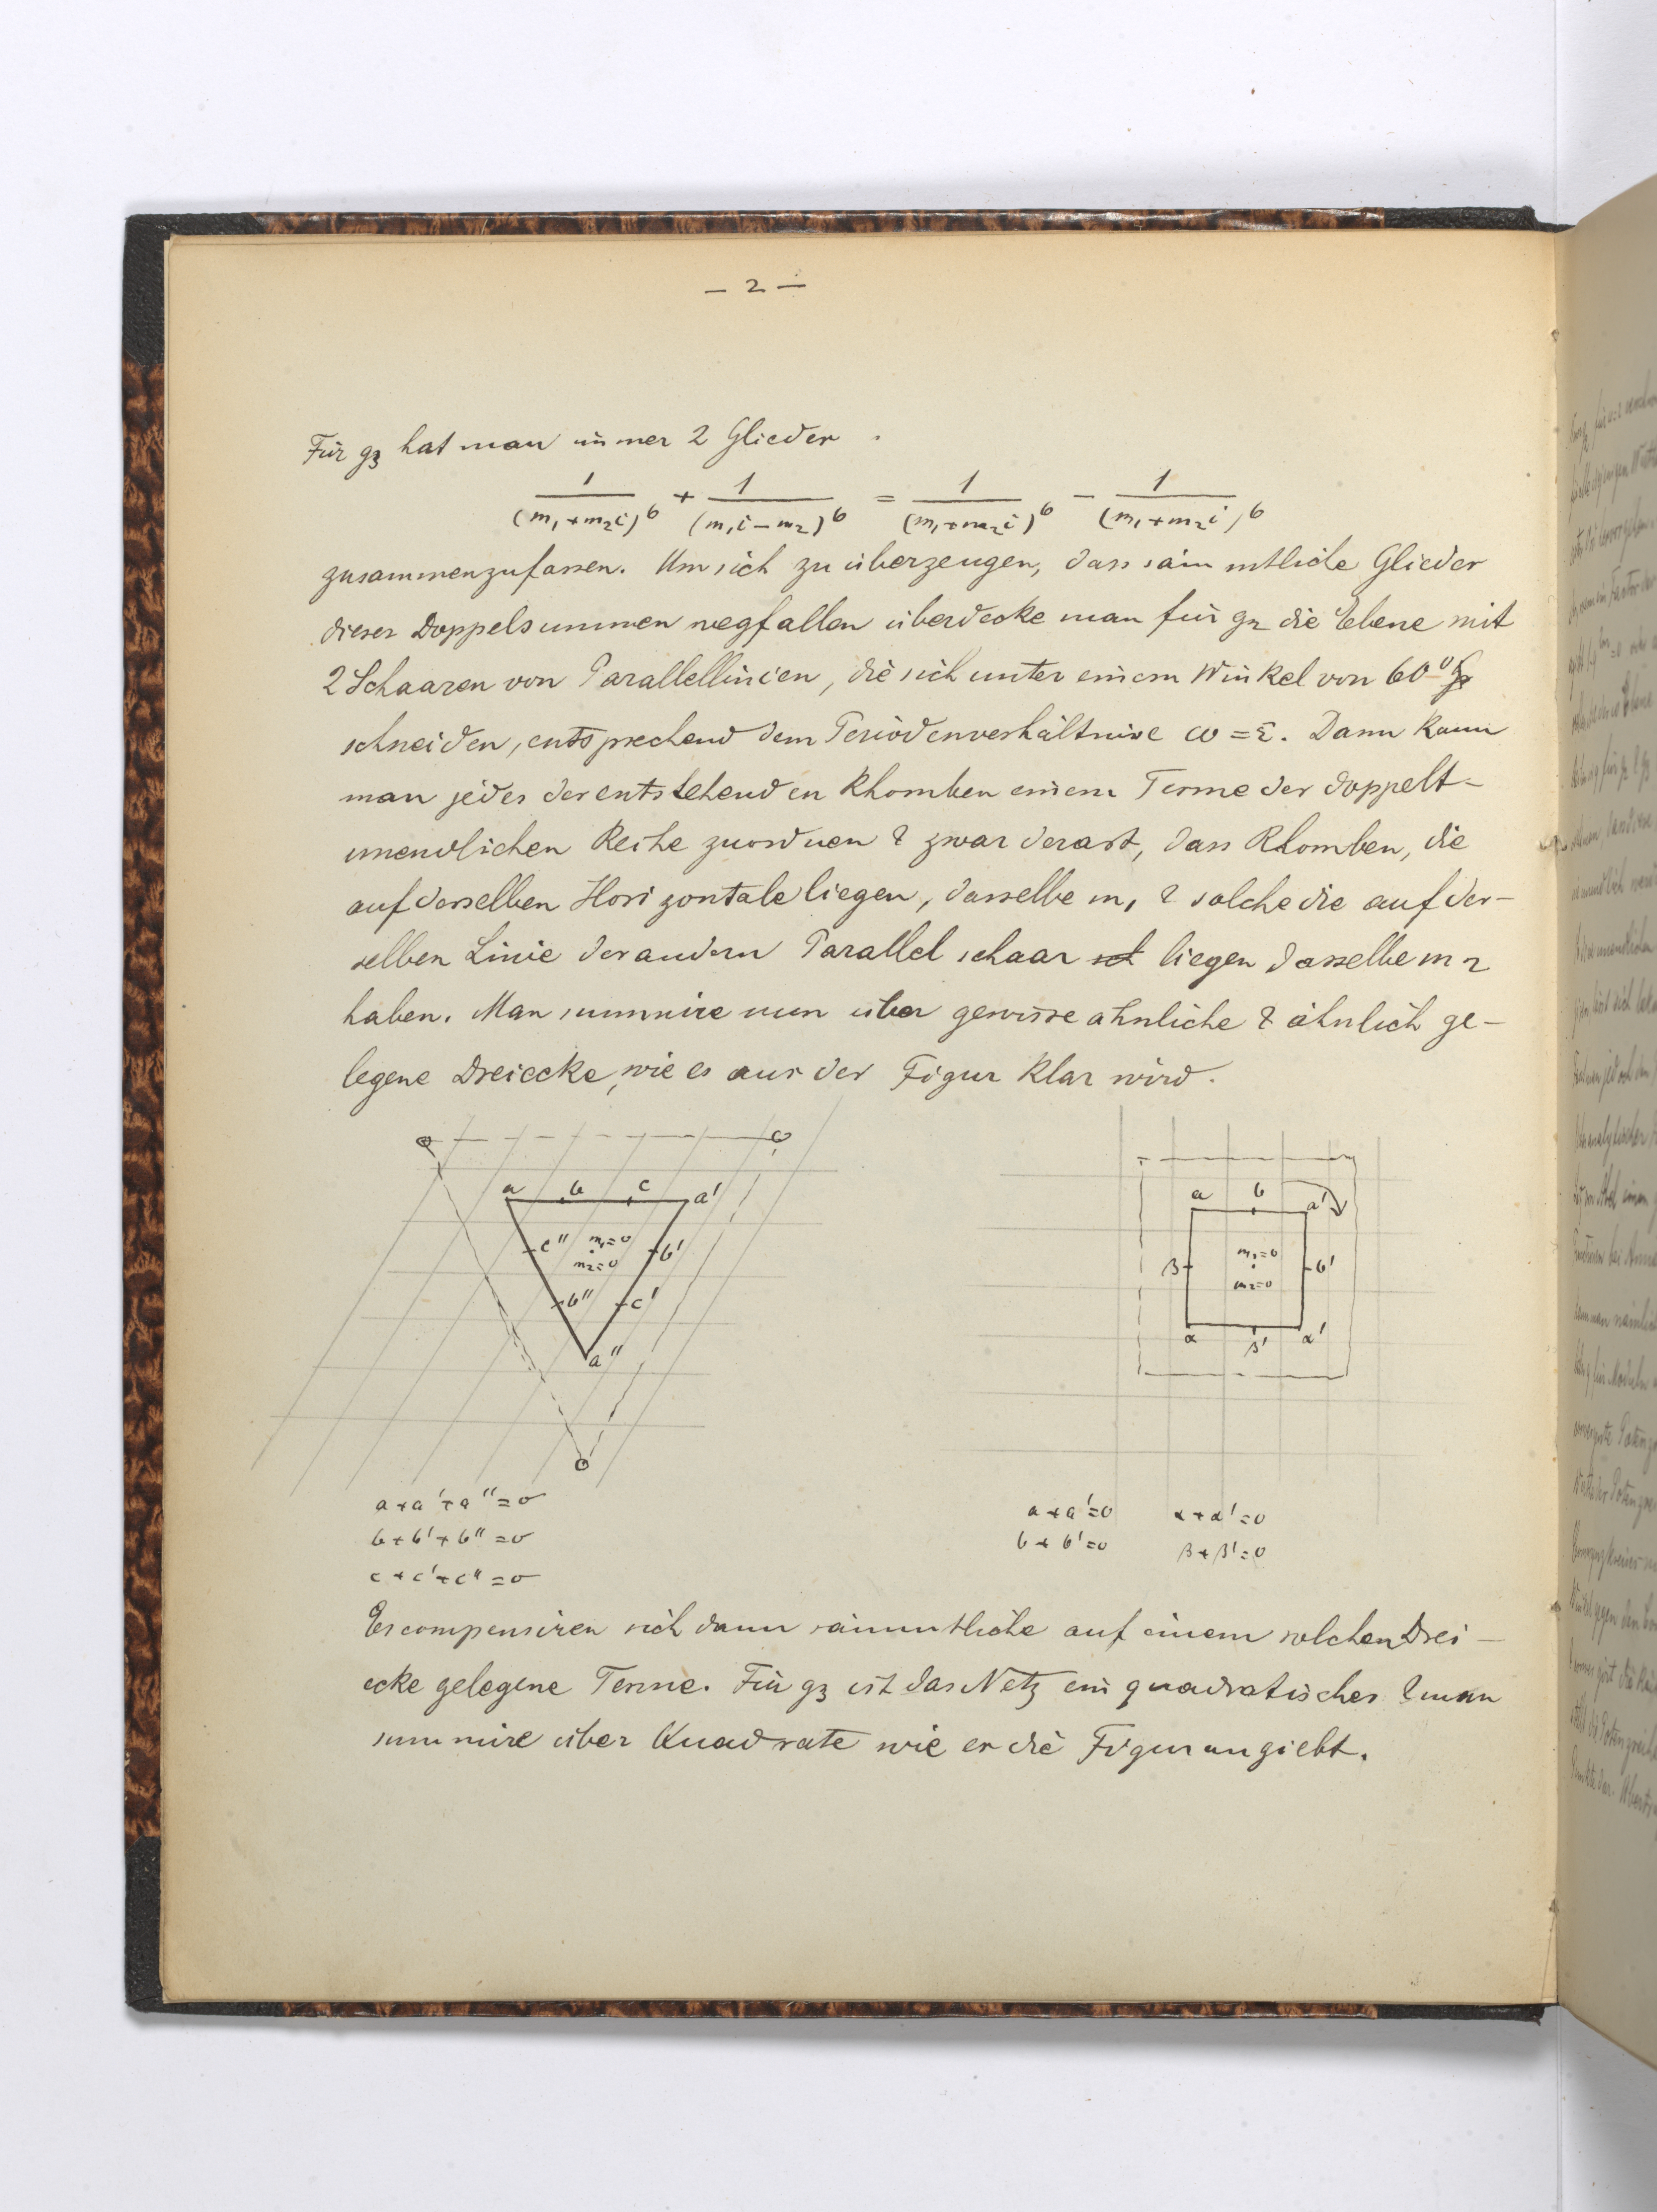 — 2 —
Für g₃ hat man immer 2 Glieder
1/(m₁+m₂i)⁶ + 1/(m₁i−m₂)⁶ = 1/(m₁+m₂i)⁶ − 1/(m₁+m₂i)⁶
zusammenzufassen. Um sich zu überzeugen, dass sämmtliche Glieder
dieser Doppelsummen wegfallen überdecke man für g₂ die Ebene mit
2 Schaaren von Parallellinien, die sich unter einem Winkel von 60°
schneiden, entsprechend dem Periodenverhältnisse ω = ε. Dann kann
man jedes der entstehenden Rhomben einem Terme der doppelt-
unendlichen Reihe zuordnen & zwar derart, dass Rhomben, die
auf derselben Horizontale liegen, dasselbe m₁ & solche die auf der-
selben Linie der andern Parallelschaar liegen dasselbe m₂
haben. Man summire nun über gewisse ähnliche & ähnlich ge-
legene Dreiecke, wie es aus der Figur klar wird.
a b c a'
c'' m₁=0 b'
m₂=0
b'' c'
a''
a b a'
β m₁=0 b'
m₂=0
α β' α'
a + a' + a'' = 0
b + b' + b'' = 0
c + c' + c'' = 0
a + a' = 0 α + α' = 0
b + b' = 0 β + β' = 0
Es compensiren sich dann sämmtliche auf einem solchen Drei-
ecke gelegene Terme. Für g₃ ist das Netz ein quadratisches & man
summire über Quadrate wie es die Figur angiebt.